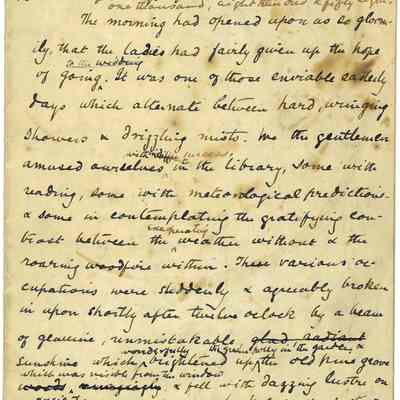 one thousand, eight hundred & fifty
The morning had opened upon us so gloom-
ily, that the ladies had fairly given up the hope
to the wedding
of going. It was one of those enviable easterly
days which alternate between hard, wringing
showers & drizzling mists. We the gentlemen
with success
amused ourselves in the library, some with
reading, some with meteorological predictions
& some in contemplating the gratifying con-
exasperating
trast between the weather without & the
roaring woodfire within. These various oc-
cupations were suddenly & agreeably broken
in upon shortly after twelve oclock by a beam
of genuine, unmistakable, glad radiant
wonderfully the green holly in the garden &
sunshine which brightened up the old pine grove
which was visible from the window
woods, amazingly & fell with dazzling lustre on